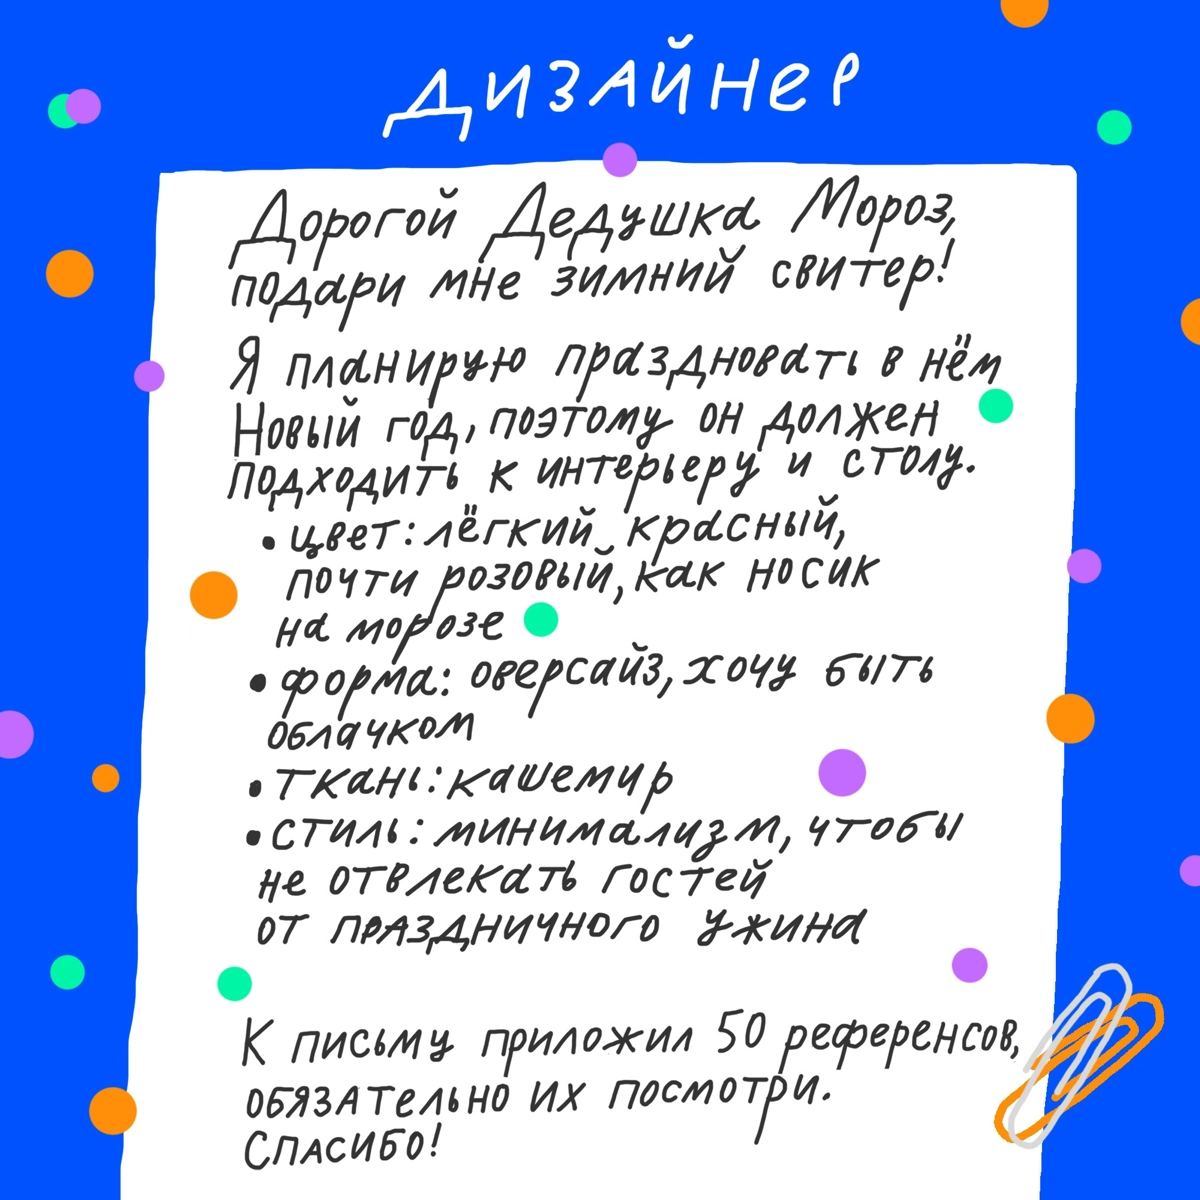 дизайнер
Дорогой Дедушка Мороз,
подари мне зимний свитер!
Я планирую праздновать в нём
Новый год, поэтому он должен
подходить к интерьеру и столу.
• цвет: лёгкий красный,
почти розовый, как носик
на морозе
• форма: оверсайз, хочу быть
облачком
• ткань: кашемир
• стиль: минимализм, чтобы
не отвлекать гостей
от праздничного ужина
К письму приложил 50 референсов,
обязательно их посмотри.
Спасибо!